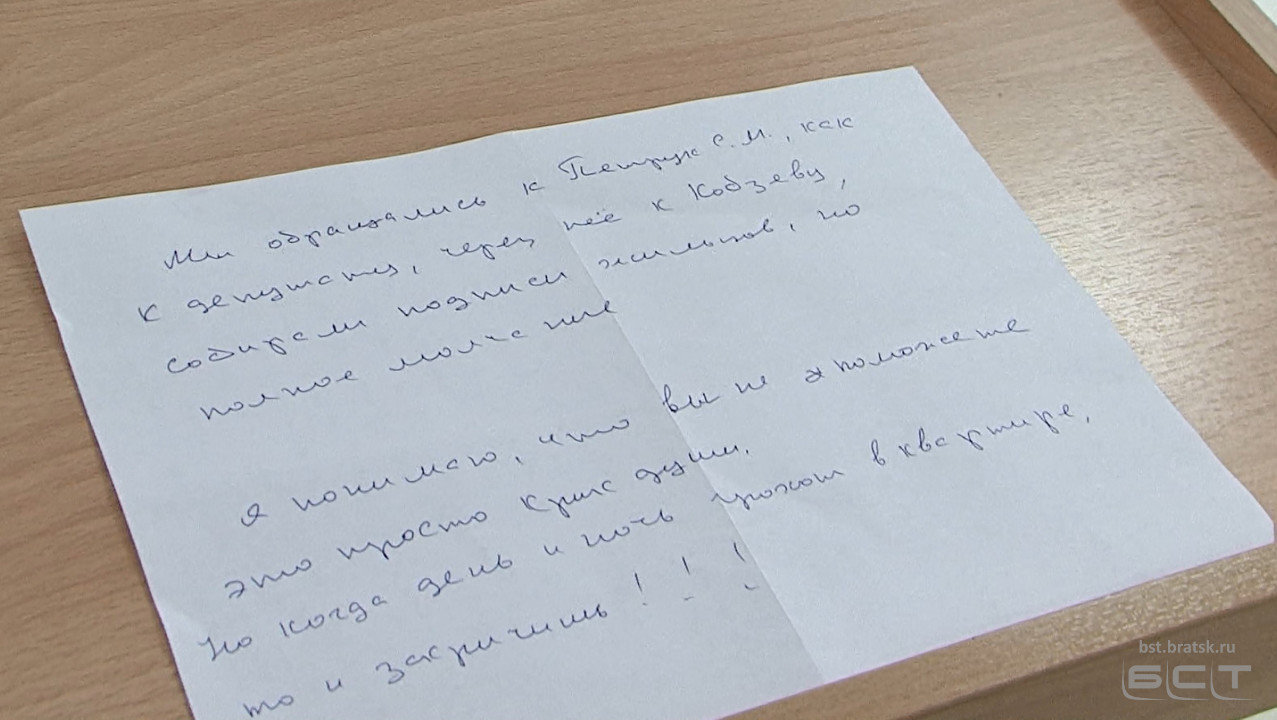 Мы обращались к Петрук С.М., как
к депутату, через неё к Кобзеву,
собирали подписи жильцов, но
полное молчание
Я понимаю, что вы не поможете
это просто крик души.
Но когда день и ночь грохот в квартире,
то и закричишь!!!
bst.bratsk.ru
БСТ